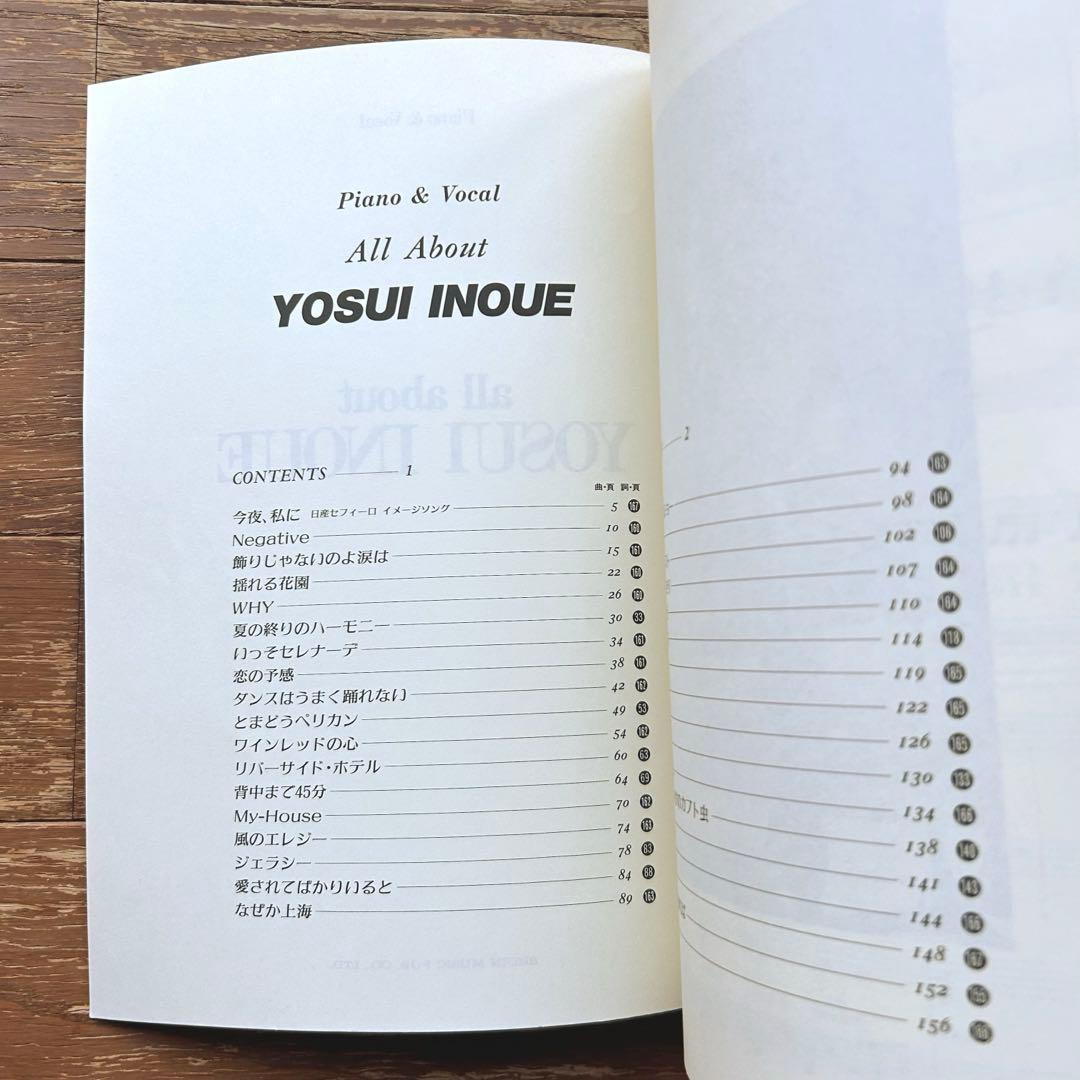 Piano & Vocal
All About
YOSUI INOUE
CONTENTS 1
曲・頁 詞・頁
今夜、私に 日産セフィーロ イメージソング 5 167
Negative 10 160
飾りじゃないのよ涙は 15 161
揺れる花園 22 160
WHY 26 160
夏の終りのハーモニー 30 33
いっそセレナーデ 34 161
恋の予感 38 161
ダンスはうまく踊れない 42 162
とまどうペリカン 49 53
ワインレッドの心 54 162
リバーサイド・ホテル 60 63
背中まで45分 64 69
My-House 70 162
風のエレジー 74 163
ジェラシー 78 83
愛されてばかりいると 84 88
なぜか上海 89 163
2
94 163
98 164
102 106
107 164
110 164
114 118
119 165
122 165
126 165
130 133
カブト虫 134 166
138 140
141 143
144 166
148 167
152
156